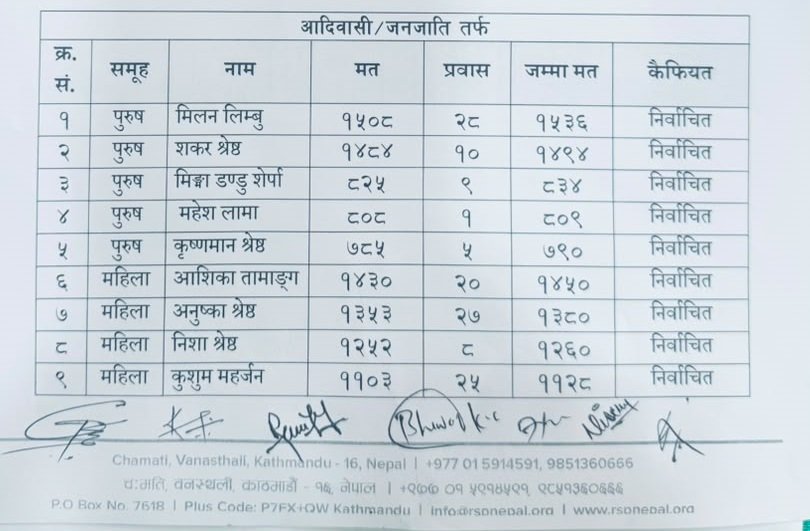 आदिवासी/जनजाति तर्फ
क्र. सं. समूह नाम मत प्रवास जम्मा मत कैफियत
१ पुरुष मिलन लिम्बु १५०८ २८ १५३६ निर्वाचित
२ पुरुष शकर श्रेष्ठ १४८४ १० १४९४ निर्वाचित
३ पुरुष मिङ्मा डण्डु शेर्पा ८२५ ९ ८३४ निर्वाचित
४ पुरुष महेश लामा ८०८ १ ८०९ निर्वाचित
५ पुरुष कृष्णमान श्रेष्ठ ७८५ ५ ७९० निर्वाचित
६ महिला आशिका तामाङ्ग १४३० २० १४५० निर्वाचित
७ महिला अनुष्का श्रेष्ठ १३५३ २७ १३८० निर्वाचित
८ महिला निशा श्रेष्ठ १२५२ ८ १२६० निर्वाचित
९ महिला कुशुम महर्जन ११०३ २५ ११२८ निर्वाचित
Chamati, Vanasthali, Kathmandu - 16, Nepal | +977 01 5914591, 9851360666
च:मति, वनस्थली, काठमाडौं - १६, नेपाल | +९७७ ०१ ५९१४५९१, ९८५१३६०६६६
P.O Box No. 7618 | Plus Code: P7FX+QW Kathmandu | info@rsonepal.org | www.rsonepal.org